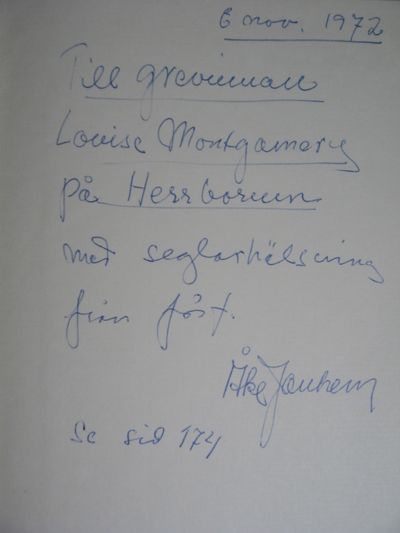 6 nov. 1972
Till grevinnan
Louise Montgomery
på Herrborum
med seglarhälsning
från
Åke
Se sid 174